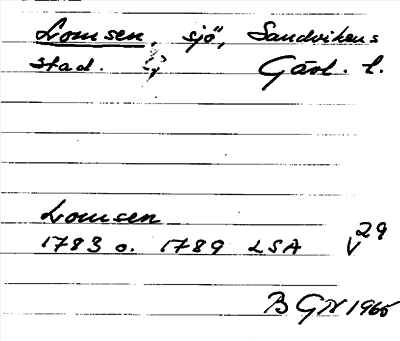 Lomsen, sjö, Sandvikens
stad. Gävl. l.
Lomsen
1783 o. 1789 LSA V29
BGN 1965